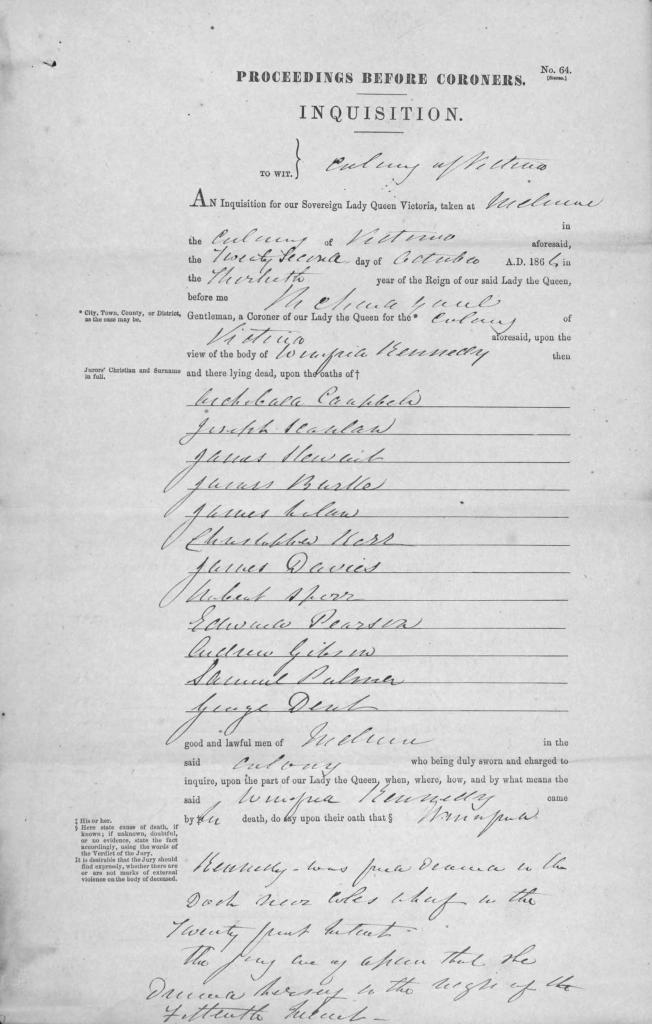 No. 64.
PROCEEDINGS BEFORE CORONERS.
INQUISITION.
TO WIT. } Colony of Victoria
AN Inquisition for our Sovereign Lady Queen Victoria, taken at Melbourne
in
the Colony of Victoria aforesaid,
the Twenty Second day of October A.D. 186 in
the Thirtieth year of the Reign of our said Lady the Queen,
before me
* City, Town, County, or District,
as the case may be.
Gentleman, a Coroner of our Lady the Queen for the* Colony of
Victoria aforesaid, upon the
view of the body of Winifred Kennedy then
Jurors' Christian and Surname
in full.
and there lying dead, upon the oaths of†
Archibald Campbell
Joseph Scanlan
James Stewart
James Burke
James
Christopher Kerr
James Davies
Robert Sporr
Edward Pearson
Andrew Gibson
Samuel Palmer
George Dent
good and lawful men of Melbourne in the
said Colony who being duly sworn and charged to
inquire, upon the part of our Lady the Queen, when, where, how, and by what means the
said Winifred Kennedy came
by‡ her death, do say upon their oath that § Winifred
‡ His or her.
§ Here state cause of death, if
known; if unknown, doubtful,
or no evidence, state the fact
accordingly, using the words of
the Verdict of the Jury.
It is desirable that the Jury should
find expressly, whether there are
or are not marks of external
violence on the body of deceased.
Kennedy was found drowned in the
Dock near Coles wharf on the
Twenty first Instant
the jury are of opinion that she
Drowned herself on the night of the
Fifteenth Instant